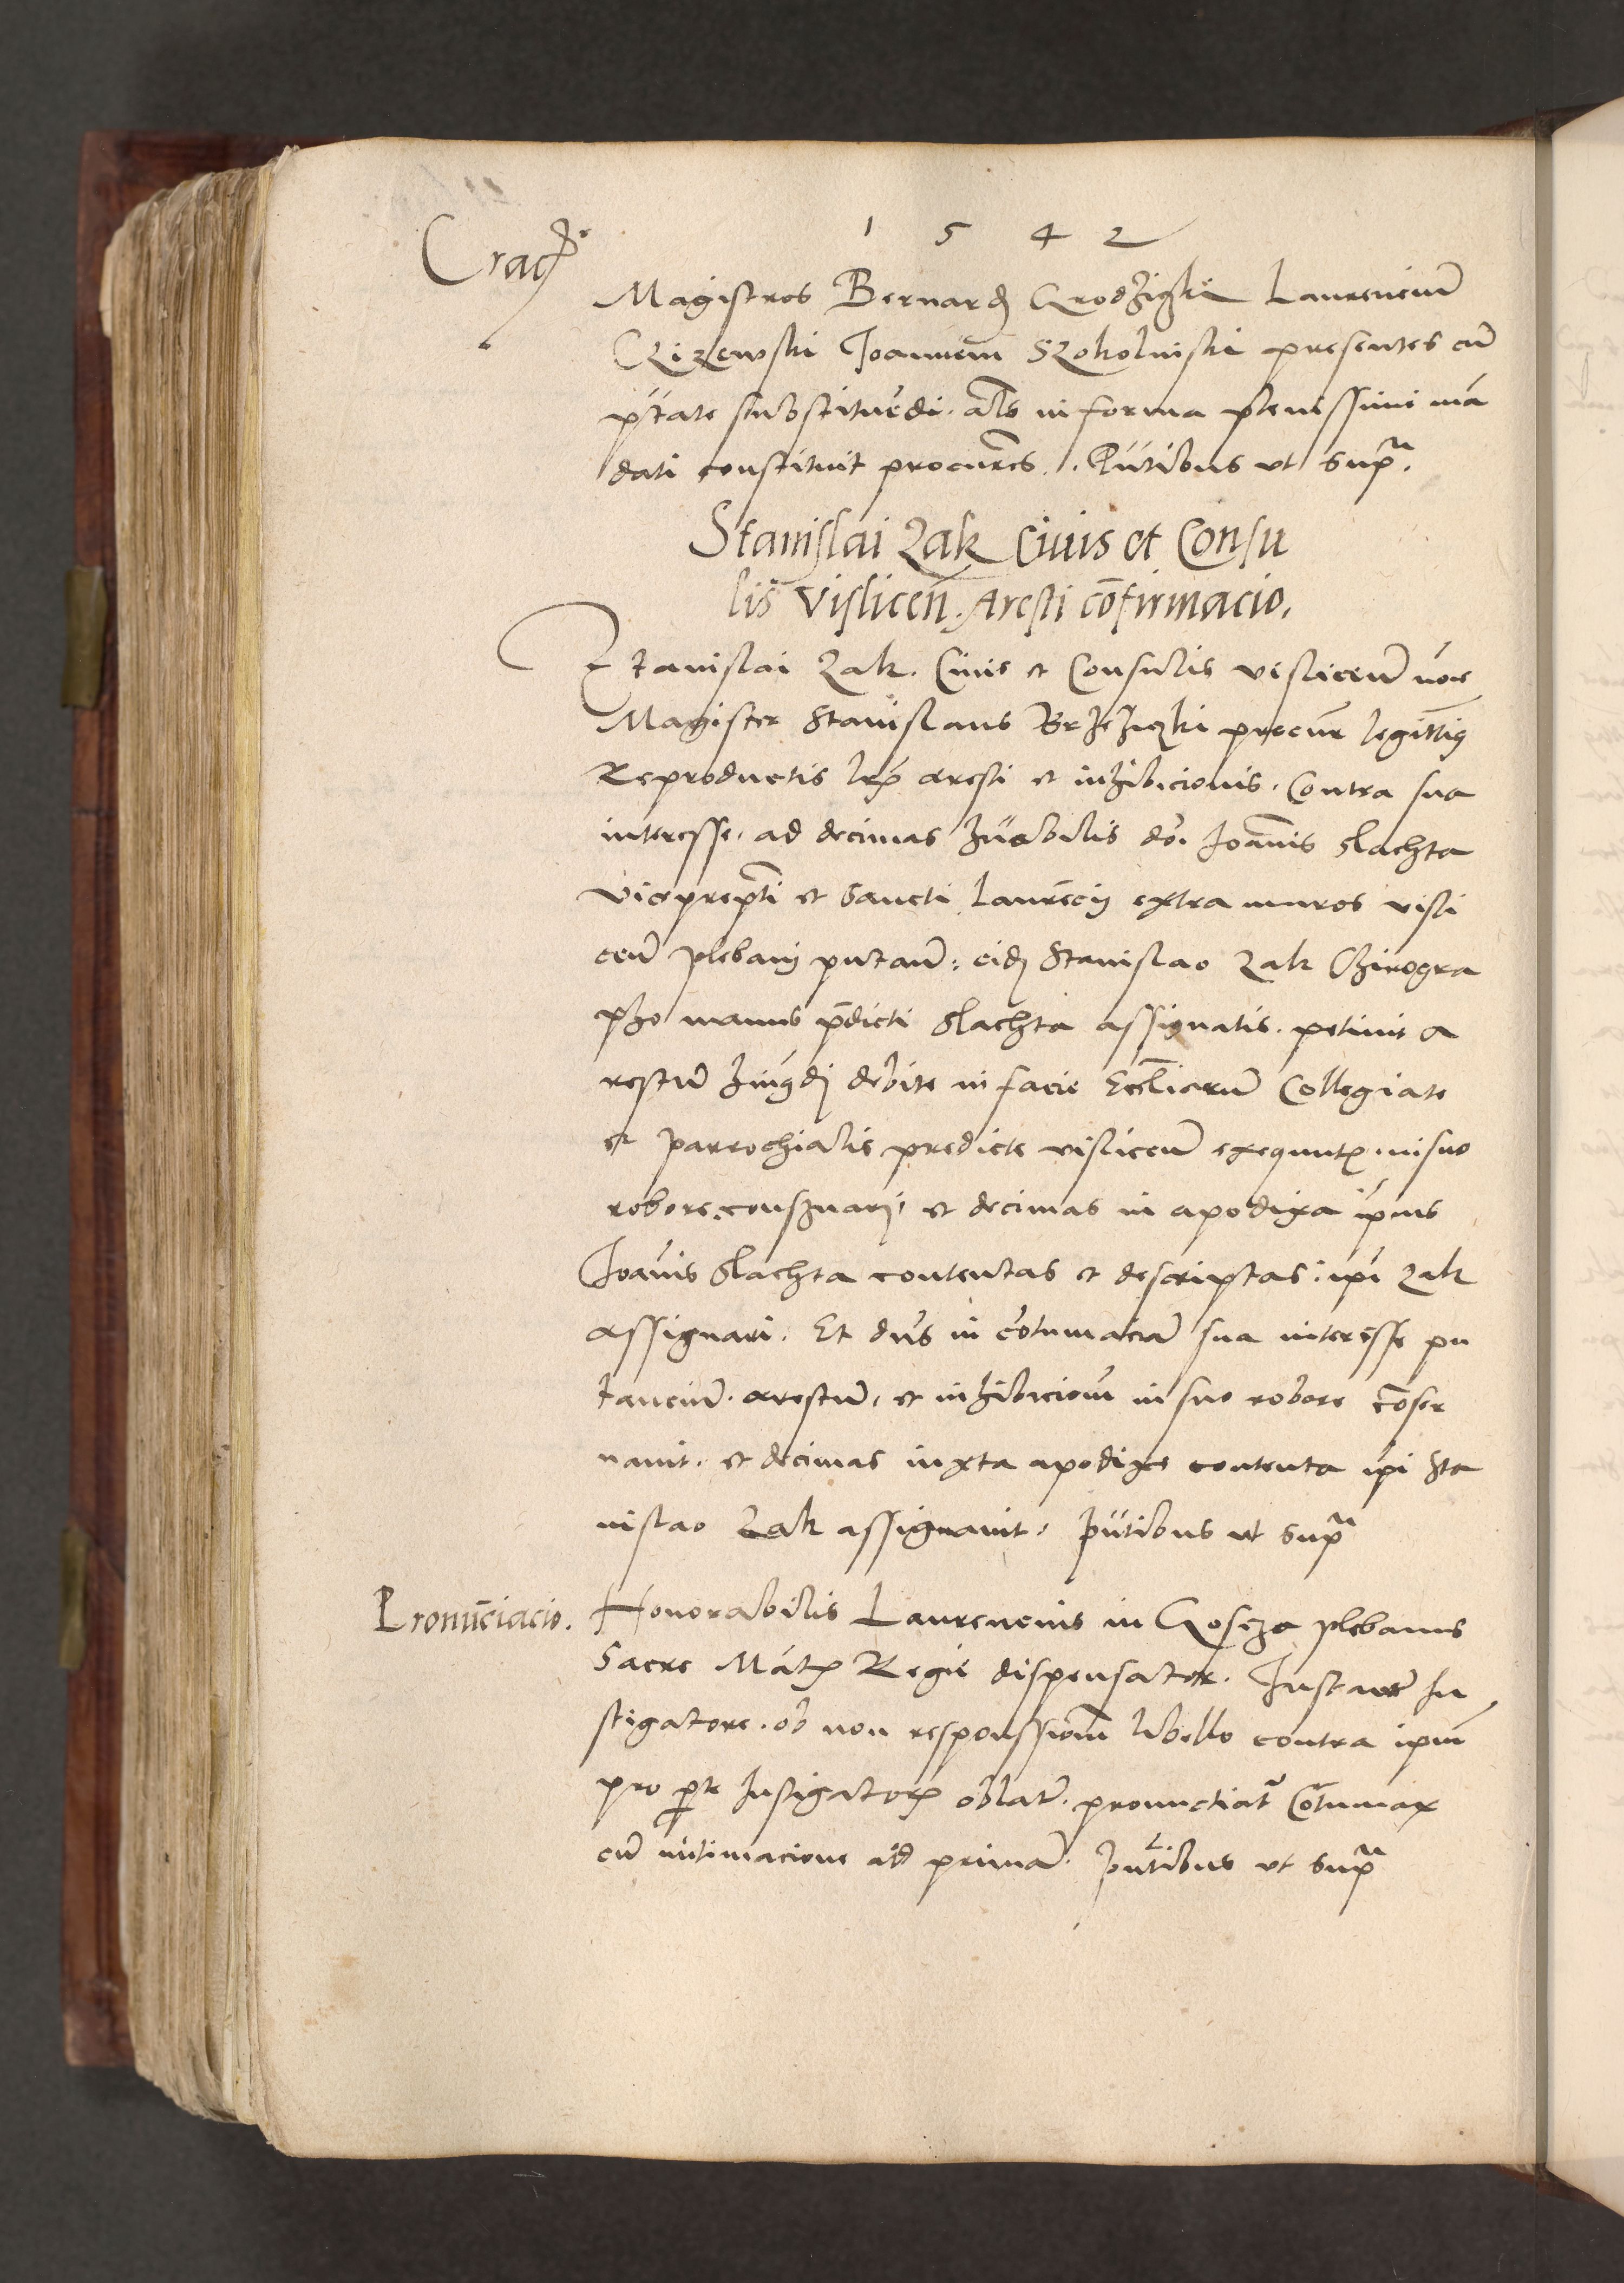 1 5 4 2
Crac̄
Magistros Bernard Grodziczki Laurencium
Czizewski Joannem Szokolniski presentes cū
p̄tate substituēdi. als in forma plenissimi mā
dati constituit procurēs. Pn̄tibus vt supra.
Stanislai Zak Ciuis et Consu
lis vislicen̄. Aresti cōfirmacio.
Stanislai Zak. Ciuis et Consulis vislicen̄ noīe
Magister Stanislaus Brzeziczki procur legittimꝯ
Reproductis lr̄is aresti et inhibicionis. Contra sua
interesse, ad decimas hn̄orabilis dn̄i. Joānnis Slachta
viceprepti et Sancti Laurēcij extra muros visli
cen̄ plebanj putan̄: eidē Stanislao Zak Chirogra
pho manus p̄dicti Slachta assignatis. petiuit a
restum hmōi debite in facie Eccliarum Collegiate
et parrochialis predicte vislicen̄ exequutū. in suo
robore. conseruarj, et decimas in apodixa ip̄ius
Joānis Slachta contentas et descriptas. ip̄i Zak
assignari. Et dn̄s in cōtumaciā sua interesse pu
tanciū. arestum, et inhibicionem in suo robore cōser
uauit. et decimas iuxta apodixe contenta ip̄i Sta
nislao Zak assignauit. Pn̄tibus vt supra
Pronūciacio.
Honorabilis Laurencius in Goscza plebanus
Sacre Māt̄is Regie dispensator. Instante In
stigatore. ob non responssionem libello contra ip̄um
pro p̄te Instigatoris oblat̄. pronuctiat̄ Cōtumax
cū intimacione ad primā. Pn̄tibus vt supra